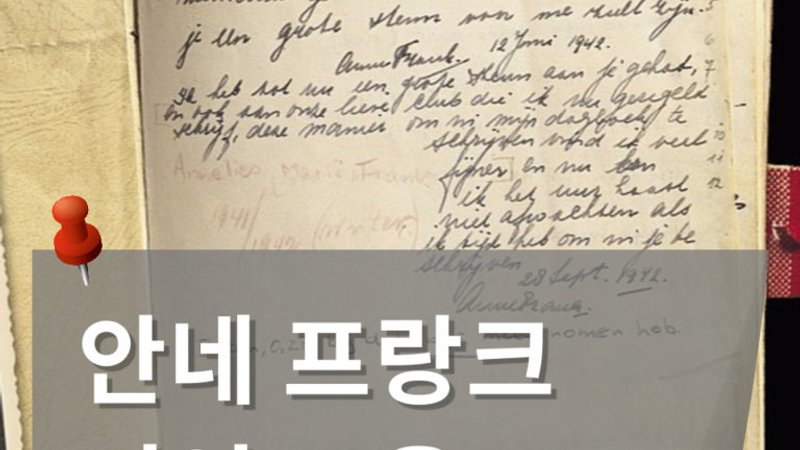 je een grote steun voor me zult zijn.
Anne Frank. 12 Juni 1942.
Ik heb tot nu een grote steun aan je gehad,
en ook aan onze lieve club die ik nu geregeld
schrijf, deze manier om in mijn dagboek te
schrijven vind ik veel
fijner en nu kan
ik het uur haast
niet afwachten als
ik tijd heb om in je te
schrijven
28 Sept. 1942.
Anne Frank.
Annelies Marie Frank
1941/
1942 (winter)
heb.
안네 프랑크